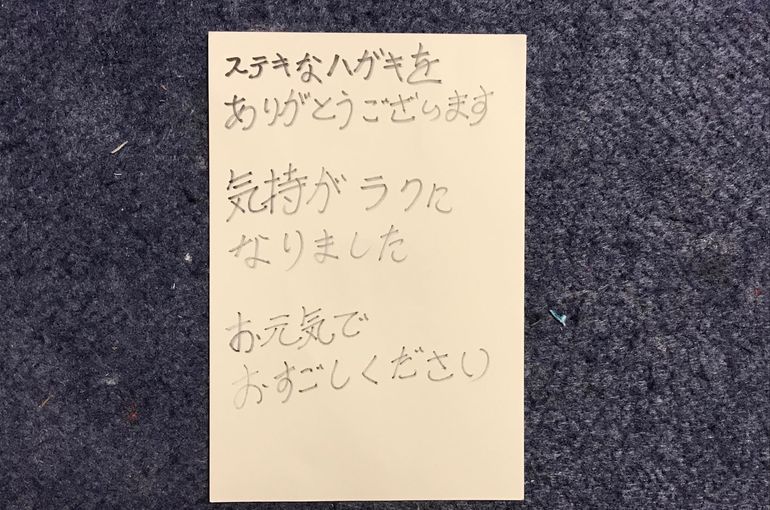 ステキなハガキを
ありがとうございます
気持がラクに
なりました
お元気で
おすごしください